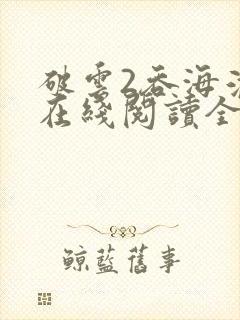 破雲2吞海
在綫閱讀全
鲸藍舊事